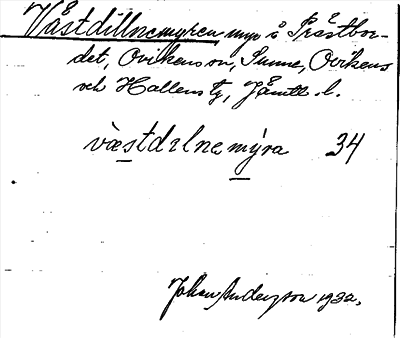 Västdillnemyren myr i Prästbor-
det, Ovikens sn, Sunne, Ovikens
och Hallens tg, Jämtl. l.
væstdɪlnemýra 34
Johan Anderzon 1932.